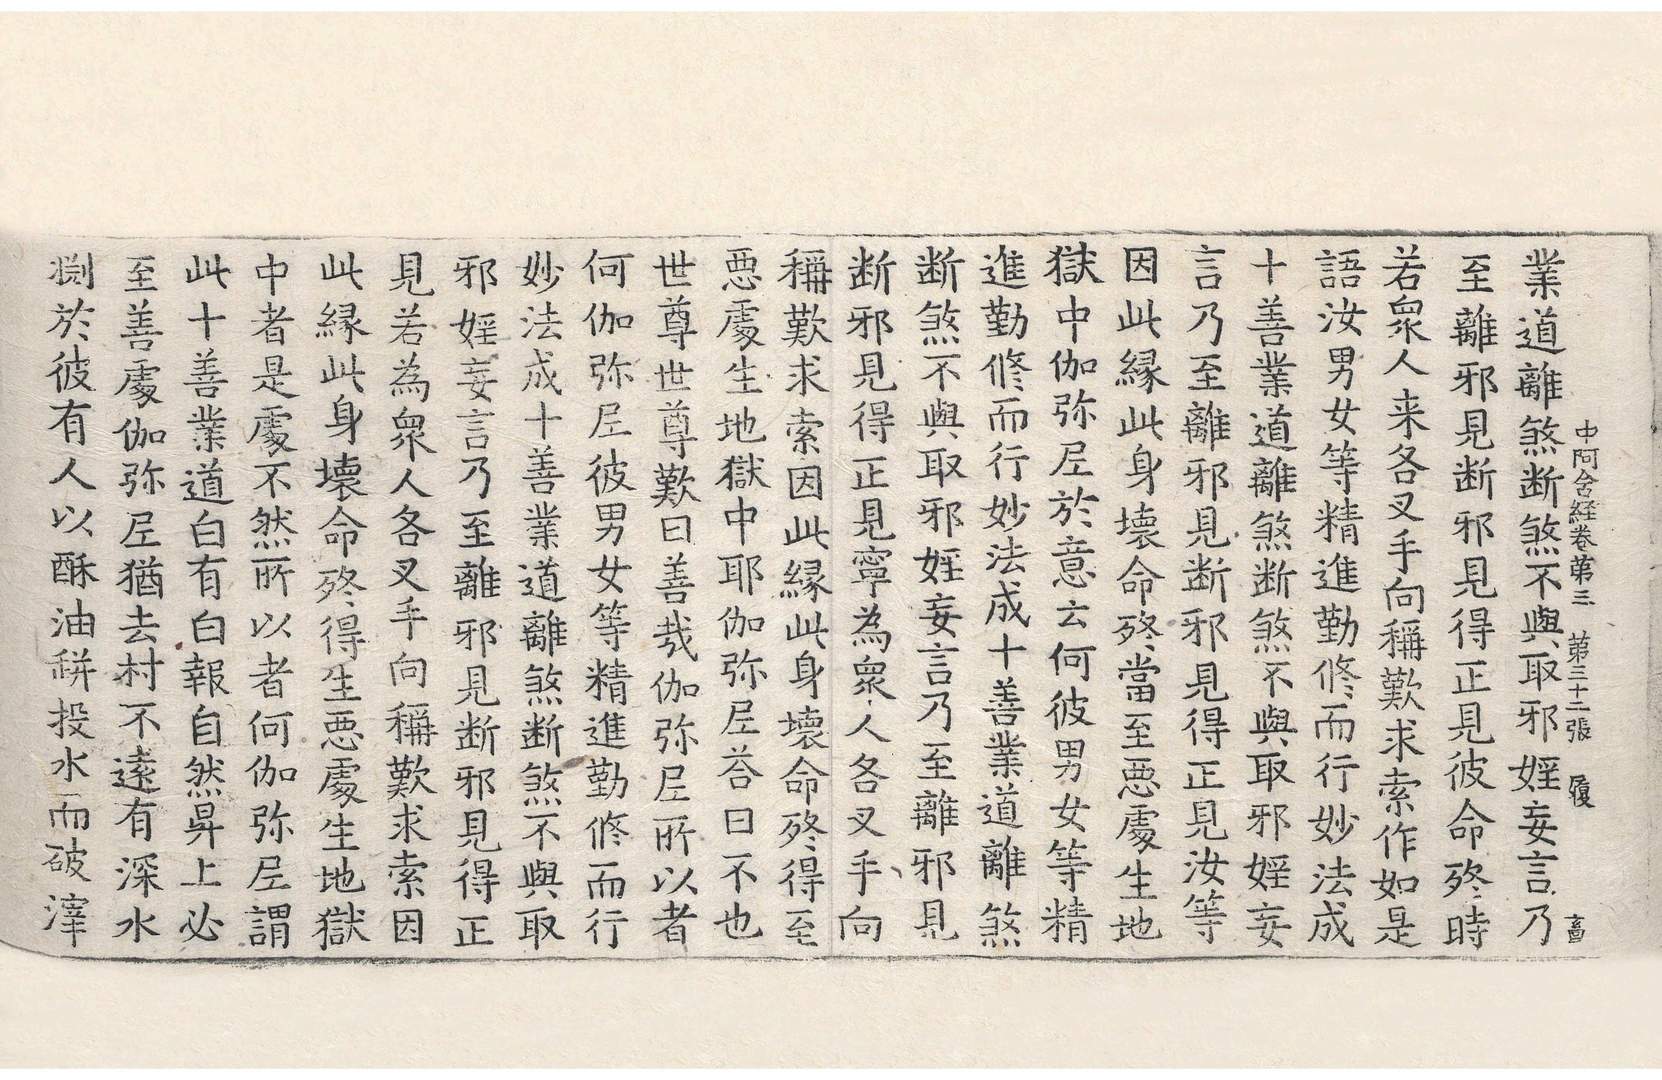 中阿含経卷第三　第三十二張　履
業道離煞断煞不與取邪婬妄言乃
至離邪見断邪見得正見彼命終時
若衆人来各叉手向稱歎求索作如是
語汝男女等精進勤修而行妙法成
十善業道離煞断煞不與取邪婬妄
言乃至離邪見断邪見得正見汝等
因此縁此身壞命終當至悪處生地
獄中伽弥尼於意云何彼男女等精
進勤修而行妙法成十善業道離煞
断煞不與取邪婬妄言乃至離邪見
断邪見得正見寧為衆人各叉手向
稱歎求索因此縁此身壞命終得至
悪處生地獄中耶伽弥尼荅曰不也
世尊世尊歎曰善哉伽弥尼所以者
何伽弥尼彼男女等精進勤修而行
妙法成十善業道離煞断煞不與取
邪婬妄言乃至離邪見断邪見得正
見若為衆人各叉手向稱歎求索因
此縁此身壞命終得生悪處生地獄
中者是處不然所以者何伽弥尼謂
此十善業道白有白報自然昇上必
至善處伽弥尼猶去村不遠有深水
渕於彼有人以酥油缾投水而破滓